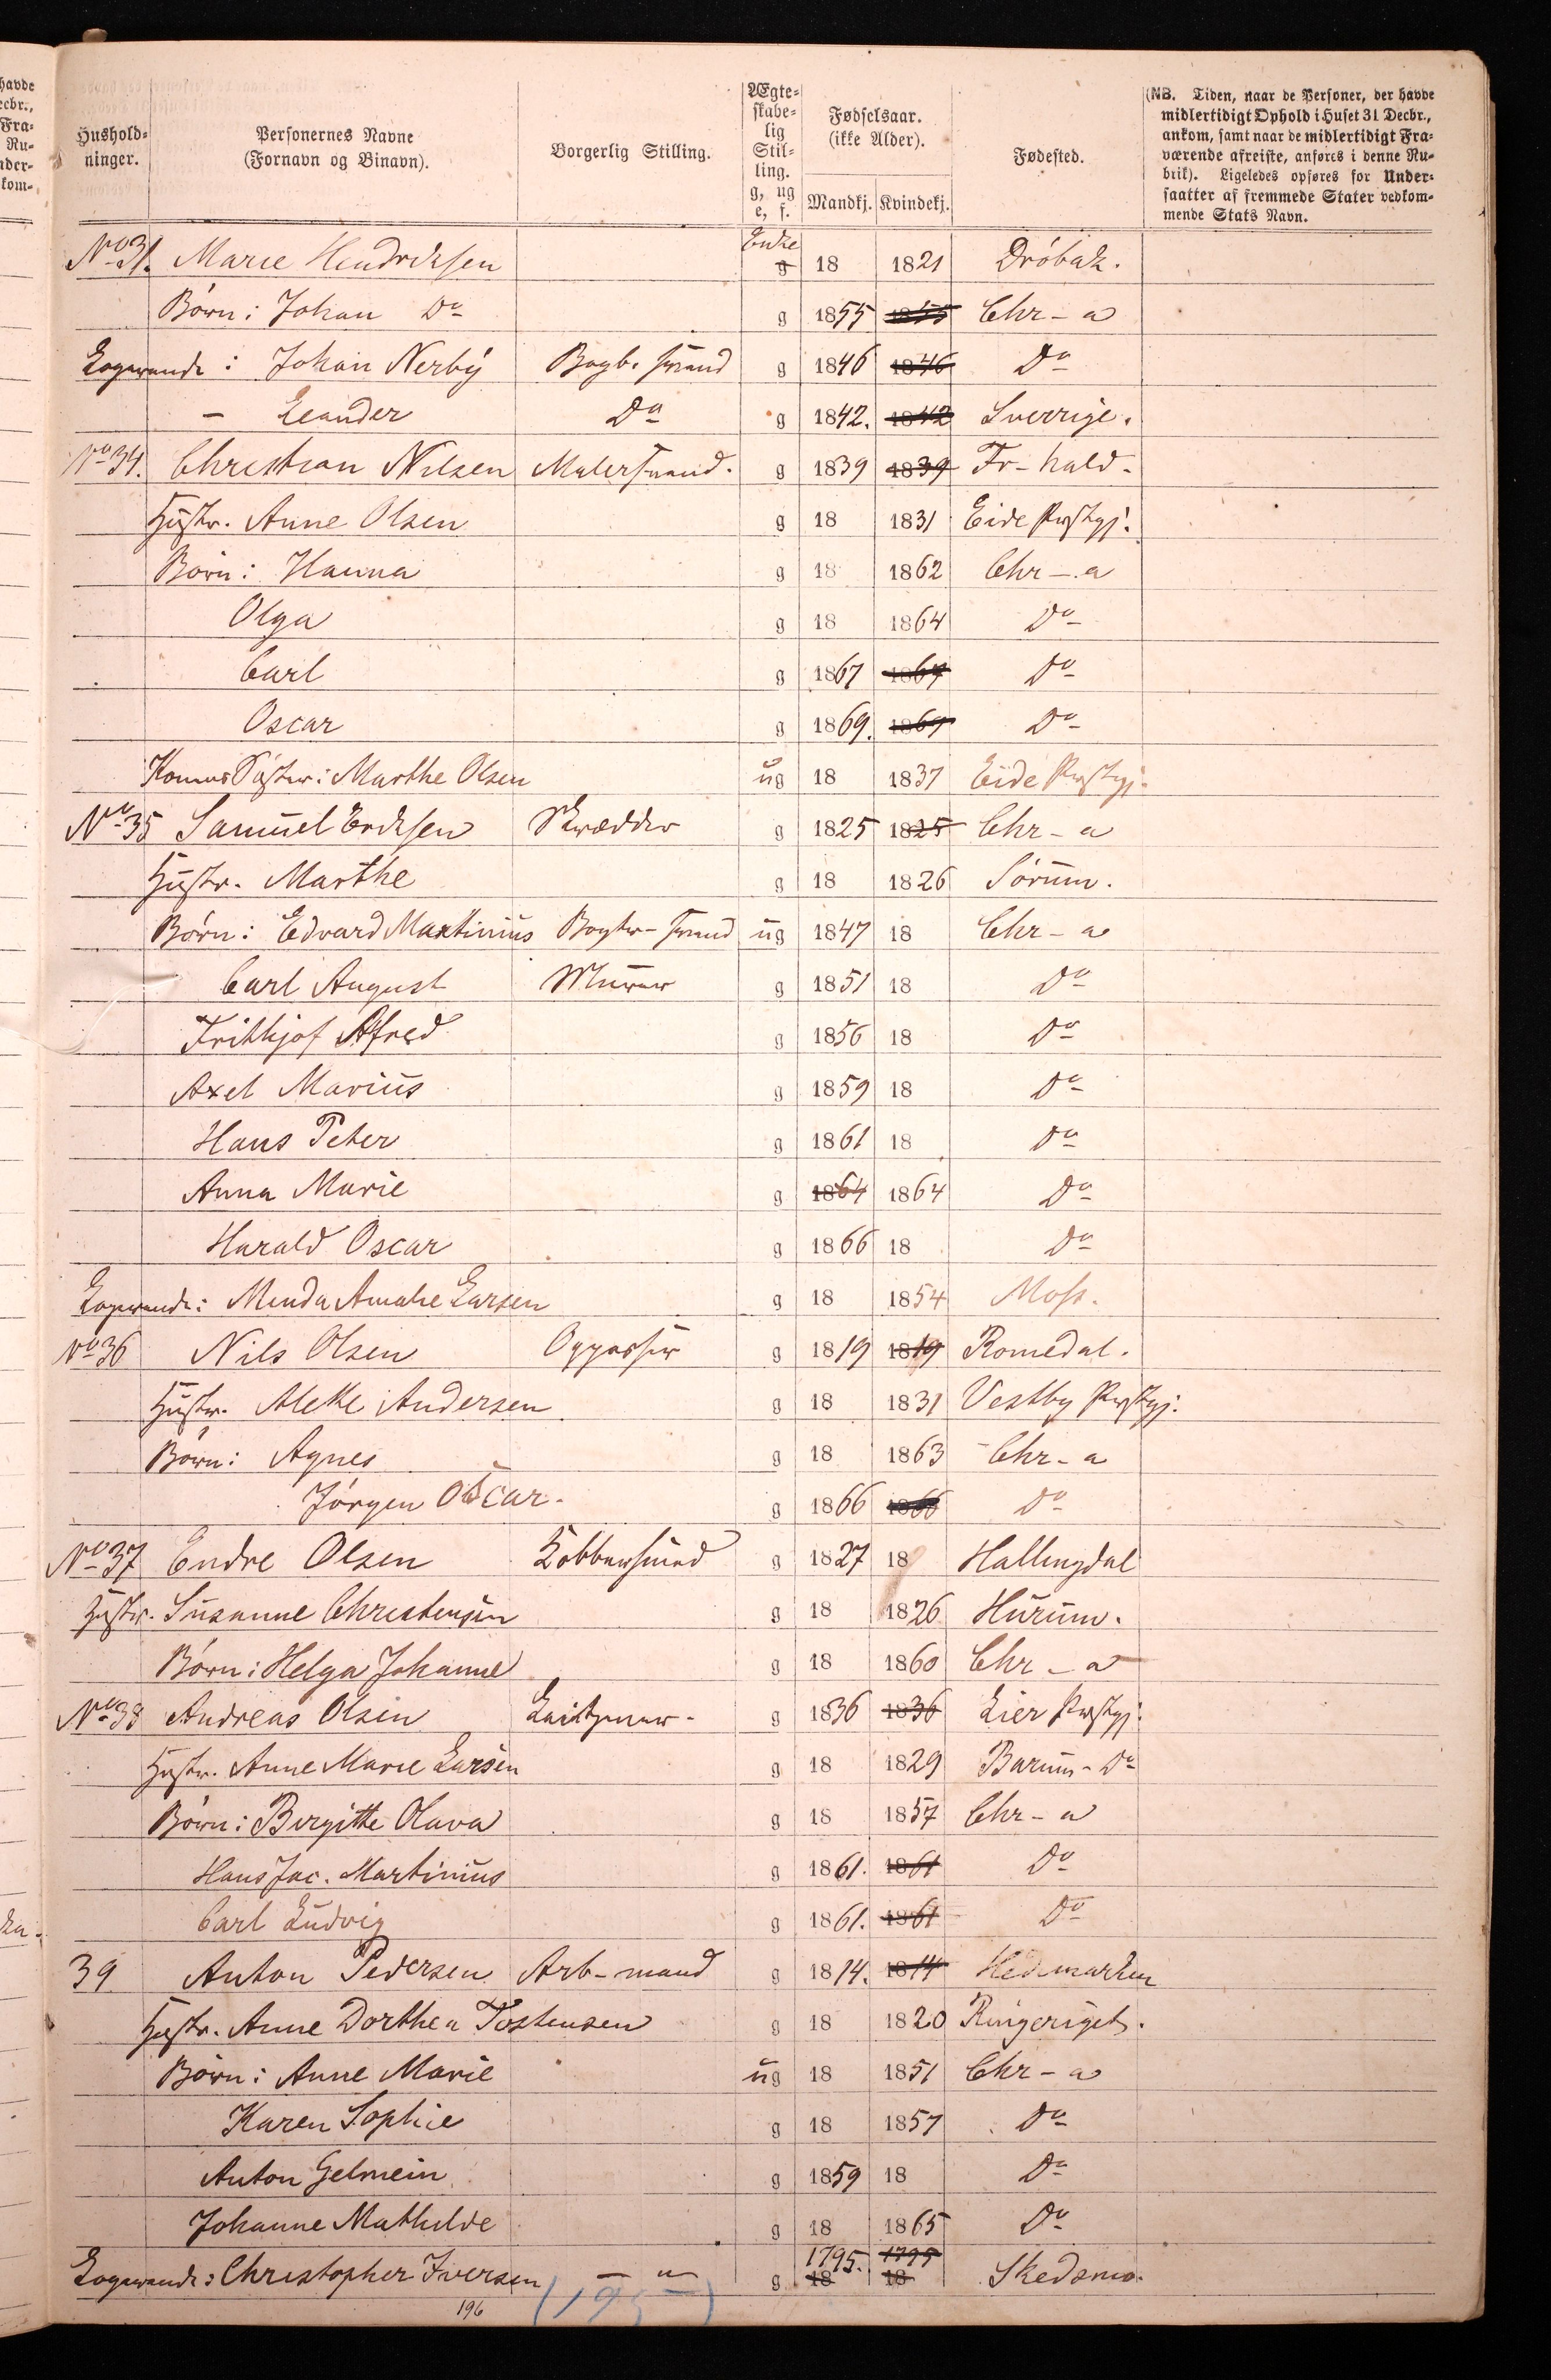 havde
ecbr.,
Fra-
Nu-
nder-
kom-
Hushold-
ninger.
Personernes Navne
(Fornavn og Binavn).
Borgerlig Stilling.
Ægte-
skabe-
lig
Stil-
ling.
g, ug
e, f.
Fødselsaar.
(ikke Alder).
Mandkj. Kvindekj.
Fødested.
(NB. Tiden, naar de Personer, der havde
midlertidigt Ophold i Huset 31 Decbr.,
ankom, samt naar de midlertidigt Fra-
værende afreiste, anføres i denne Ru-
brik). Ligeledes opføres for Under-
saatter af fremmede Stater vedkom-
mende Stats Navn.
No 31. Marie Hendriksen Enke g 18 1821 Dröbak.
Børn: Johan Do g 1855 1855 Chr-a
Logerende: Johan Nerby Bogb. svend g 1846 1846 Do
- Leander Do g 1842. 1842 Sverrige.
No 34. Christian Nilsen Malersvend. g 1839 1839 Fr-hald-
Hustr. Anne Olsen g 18 1831 Eide Prstgj.
Børn: Hanna g 18 1862 Chr-a
Olga g 18 1864 Do
Carl g 1867 1867 Do
Oscar g 1869. 1869 Do
Konens Søster: Marthe Olsen ug 18 1837 Eide Prstgj.
No 35 Samuel Eriksen Skrædder g 1825 1825 Chr-a
Hustr. Marthe g 18 1826 Sørum.
Børn: Edvard Martinius Bogtr-svend ug 1847 18 Chr-a
Carl August Murer g 1851 18 Do
Frithjof Alfred g 1856 18 Do
Axel Marius g 1859 18 Do
Hans Peter g 1861 18 Do
Anna Marie g 1864 1864 Do
Harald Oscar g 1866 18 Do
Logerende: Minda Amalie Larsen g 18 1854 Moss.
No 36 Nils Olsen Oppasser g 1819 1819 Romedal.
Hustr. Alette Andersen g 18 1831 Vestby Prstgj:
Børn: Agnes g 18 1863 Chr-a
Jörgen Oscar. g 1866 1866 Do
No 37 Endre Olsen Kobbersmed g 1827 18 Hallingdal
Hustr. Susanne Christensen g 18 1826 Hurum.
Børn: Helga Johanne g 18 1860 Chr-a
No 38 Andreas Olsen g 1836 1836 Lier Prstgj.
Hustr. Anne Marie Larsen g 18 1829 Barum- Do
Børn: Birgitte Olava g 18 1857 Chr-a
Hans Jac. Martinius g 1861. 1861 Do
Carl Ludvig g 1861. 1861 Do
39 Anton Pedersen Arb-mand g 1814. 1814 Hedemarken
Hustr. Anne Dorthea Tostensen g 18 1820 Ringeriget.
Børn: Anne Marie ug 18 1851 Chr-a
Karen Sophie g 18 1857 Do
Anton Gelmein g 1859 18 Do
Johanne Mathilde g 18 1865 Do
Logerende: Christopher Iversen - " - g 1795. 18 1795 18 Skedsmo.
196